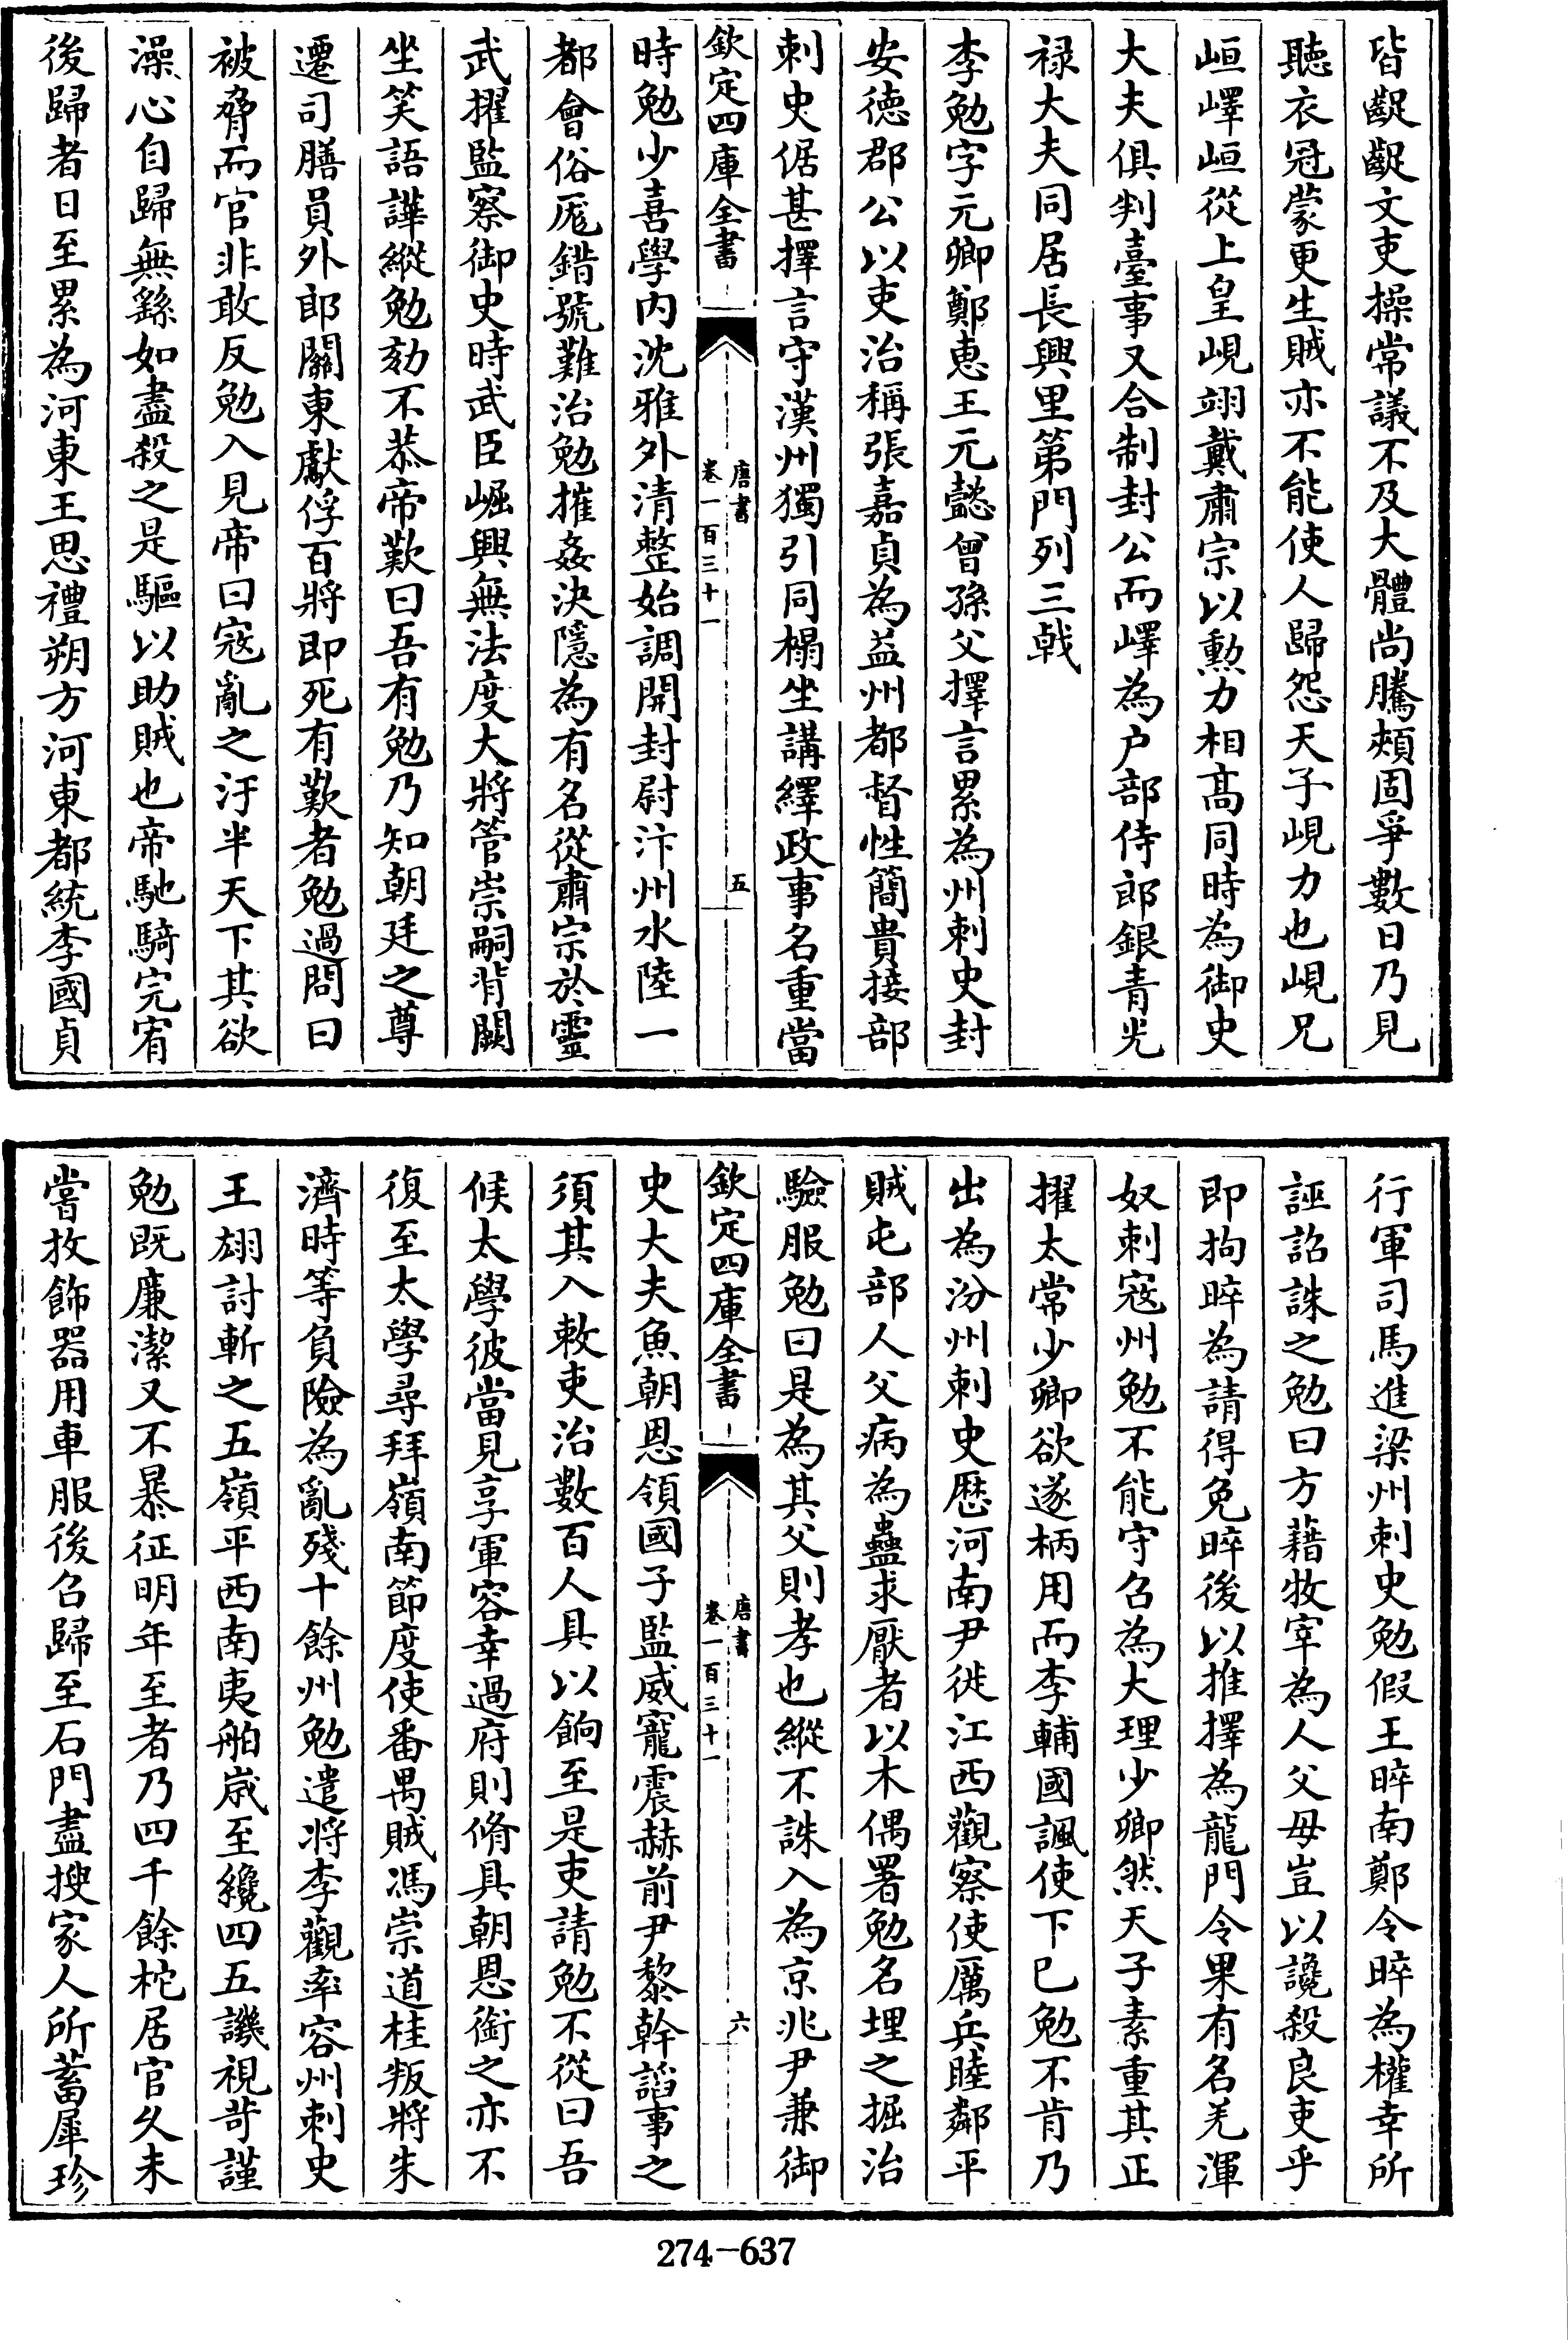 皆齪齪文吏操常議不及大體尚騰頰固爭數日乃見
聽衣冠蒙更生賊亦不能使人歸怨天子峴力也峴兄
峘嶧峘從上皇峴翊戴肅宗以勲力相高同時為御史
大夫俱判臺事又合制封公而嶧為户部侍郎銀青光
禄大夫同居長興里第門列三㦸
李勉字元卿鄭惠王元懿曾孫父擇言累為州刺史封
安德郡公以吏治稱張嘉貞為益州都督性簡貴接部
刺史倨甚擇言守漢州獨引同榻坐講繹政事名重當
欽定四庫全書
唐書
卷一百三十一
五
時勉少喜學内沈雅外清整始調開封尉汴州水陸一
都會俗厖錯號難治勉摧姦決隱為有名從肅宗於靈
武擢監察御史時武臣崛興無法度大將管崇嗣背闕
坐笑語譁縱勉劾不恭帝歎曰吾有勉乃知朝廷之尊
遷司膳員外郎關東獻俘百將即死有歎者勉過問曰
被脅而官非敢反勉入見帝曰寇亂之汙半天下其欲
澡心自歸無繇如盡殺之是驅以助賊也帝馳騎完宥
後歸者日至累為河東王思禮朔方河東都統李國貞
行軍司馬進梁州刺史勉假王晬南鄭令晬為權幸所
誣詔誅之勉曰方藉牧宰為人父母豈以讒殺良吏乎
即拘晬為請得免晬後以推擇為龍門令果有名羌渾
奴刺寇州勉不能守召為大理少卿然天子素重其正
擢太常少卿欲遂柄用而李輔國諷使下已勉不肯乃
出為汾州刺史歴河南尹徙江西觀察使厲兵睦鄰平
賊屯部人父病為蠱求厭者以木偶署勉名埋之掘治
驗服勉曰是為其父則孝也縱不誅入為京兆尹兼御
欽定四庫全書
唐書
卷一百三十一
六
史大夫魚朝恩領國子監威寵震赫前尹黎幹謟事之
須其入敕吏治數百人具以餉至是吏請勉不從曰吾
候太學彼當見享軍容幸過府則脩具朝恩銜之亦不
復至太學尋拜嶺南節度使番禺賊馮崇道桂叛將朱
濟時等負險為亂殘十餘州勉遣將李觀率容州刺史
王翃討斬之五嶺平西南夷舶嵗至纔四五譏視苛謹
勉既廉潔又不暴征明年至者乃四千餘柁居官乆未
嘗抆飾器用車服後召歸至石門盡搜家人所蓄犀珍
274-637